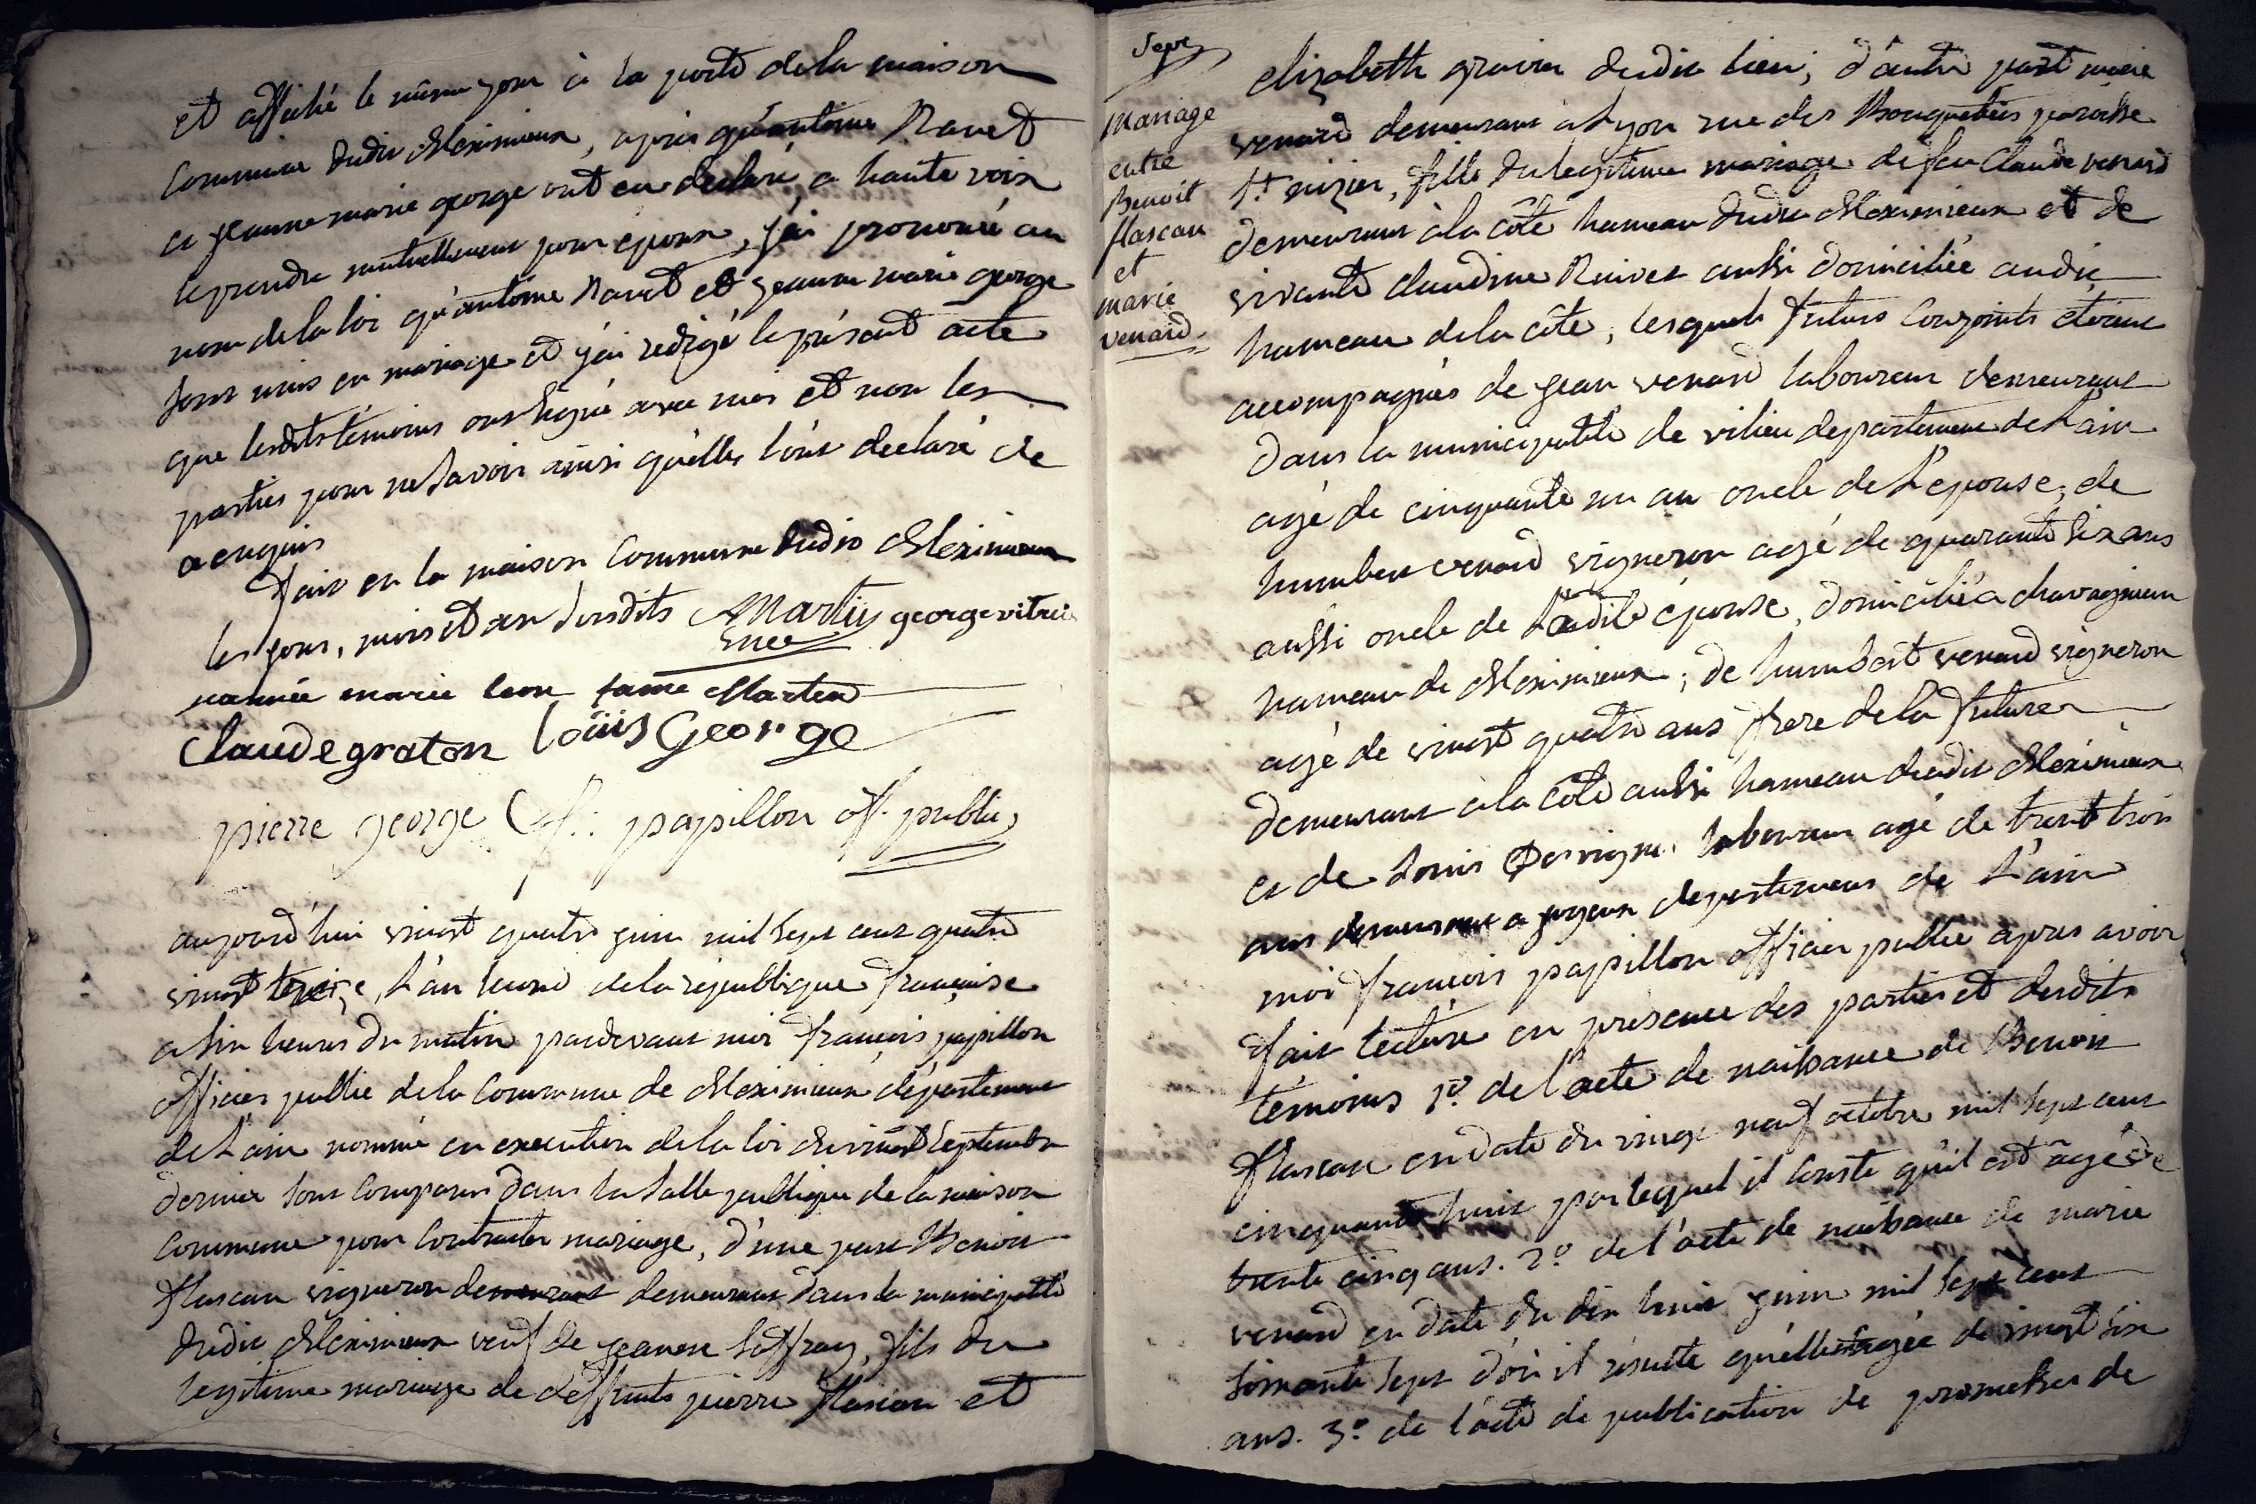 et affiché le même jour à la porte de la maison
commune dudit Meximieux, après qu'antoine Navet
et jeanne marie george ont eu declaré a haute voix
se prendre mutuellement pour epoux, j'ai prononcé au
nom de la loi qu'antoine Navet et jeanne marie george
sont unis en mariage et j'ai redigé le présent acte
que lesdits témoins ont signé avec moi et non les
parties pour ne savoir ainsi qu'elles l'ont declaré de
ce enquis
fait en la maison commune dudit Meximieux
les jour, mois et an susdits Martin george
marie leon fame Marten
Claude graton loüis George
pierre george f. papillon off. public
aujourd'hui vingt quatre juin mil sept cent quatre
vingt treize, l'an second de la republique françoise
a six heures du matin pardevant moi françois papillon
officier public de la commune de Meximieux département
de l'ain nommé en execution de la loi du vingt septembre
dernier sont comparus dans la salle publique de la maison
commune pour contracter mariage, d'une part Benoit
flascau vigneron demeurant demeurant dans la municipalité
dudit Meximieux veuf de jeanne soffray, fils du
legitime mariage de deffunts pierre flascau et
Sept
Mariage
entre
Benoit
flascau
et
marie
venard
elizabeth gravier dudit lieu; d'autre part marie
venard demeurant à Lyon rue des Bouquetiers paroisse
St. nizier, fille du legitime mariage de feu Claude venard
demeurant à la côte hameau dudit Meximieux et de
vivante claudine Rivet aussi domiciliée audit
hameau de la côte, lesquels futurs conjoints etoient
accompagnés de jean venard laboureur demeurant
dans la municipalité de vilieu departement de l'ain
agé de cinquante un an oncle de l'epouse, de
humbert venard vigneron agé de quarante six ans
aussi oncle de ladite epouse, domicilié a chavagnieux
hameau de Meximieux; de humbert venard vigneron
agé de vingt quatre ans frere de la future
demeurant à la côte aussi hameau dudit Meximieux
et de Louis Dervigne laboureur agé de trente trois
ans demeurant a joyeux departement de l'ain
moi françois papillon officier public apres avoir
fait lecture en presence des parties et desdits
témoins 1º. de l'acte de naissance de Benoit
flascau en date du vingt neuf octobre mil sept cent
cinquante huit par lequel il conste qu'il est agé de
trente cinq ans. 2º de l'acte de naissance de marie
venard en date du dix huit juin mil sept cent
soixante sept d'où il résulte qu'elle est agée de vingt six
ans. 3º de l'acte de publication de promesses de